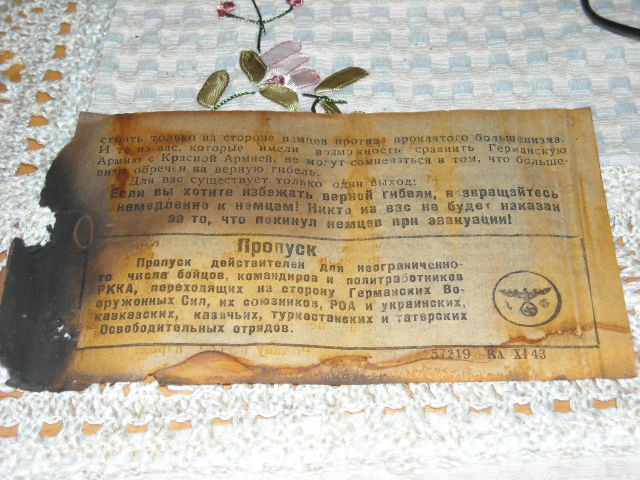 стоять только на стороне немцев против проклятого большевизма.
И те из вас, которые имели возможность сравнить Германскую
Армию с Красной Армией, не могут сомневаться в том, что больше-
визм обречен на верную гибель.
Для вас существует только один выход:
Если вы хотите избежать верной гибели, возвращайтесь
немедленно к немцам! Никто из вас не будет наказан
за то, что покинул немцев при эвакуации!
Пропуск
Пропуск действителен для неограниченно-
го числа бойцов, командиров и политработников
РККА, переходящих на сторону Германских Во-
оруженных Сил, их союзников, РОА и украинских,
кавказских, казачьих, туркестанских и татарских
Освободительных отрядов.
57219 RA XI 43